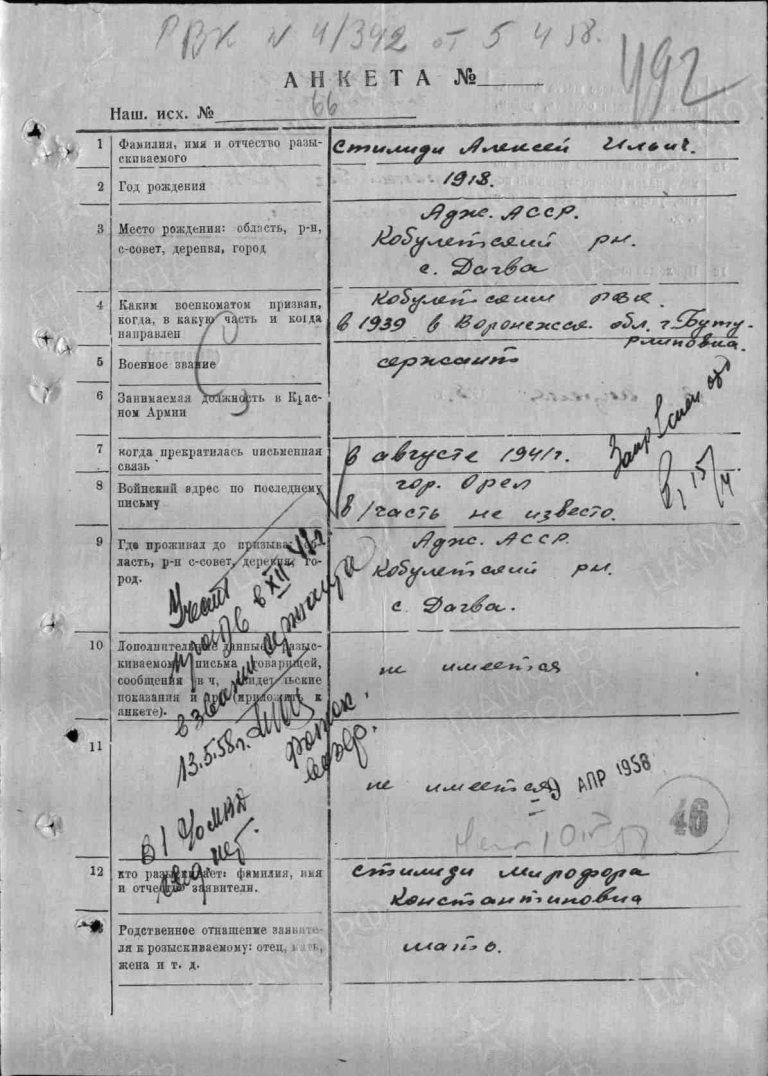 РВК N 4/392 от 5 4 58.
492
АНКЕТА №
Наш. исх. № 66
1 Фамилия, имя и отчество разы-
скиваемого
Стилиди Алексей Ильич.
2 Год рождения
1918.
3 Место рождения: область, р-н,
с-совет, деревня, город
Адж. АССР.
Кобулетский рн.
с. Дагва
4 Каким военкоматом призван,
когда, в какую часть и когда
направлен
Кобулетским рвк.
в 1939 в Воронежск. обл. г. Буту-
рлиновка.
5 Военное звание
сержант
6 Занимаемая должность в Крас-
ном Армии
7 когда прекратилась письменная
связь
в августе 1941 г.
8 Войнский адрес по последнему
письму
гор. Орел
в/часть не известо.
15/4
9 Где проживал до призыва: об-
ласть, р-н с-совет, деревня, го-
род.
Адж. АССР.
Кобулетский рн.
с. Дагва.
10 Дополнительные данные о разыс-
киваемом письма товарищей,
сообщения в ч, свидетельские
показания и др. (приложить к
анкете).
не имеется
Учесть
проп. в XII 43 г.
в звании сержанта
13.5.58 г.
11
не имеется
9 АПР 1958
46
В 1
свед нет.
12 кто разыскивает: фамилия, имя
и отчество заявителя.
Стилиди Мирофора
Константиновна
Родственное отнашение заявите-
ля к розыскиваемому: отец, мать,
жена и т. д.
мать.